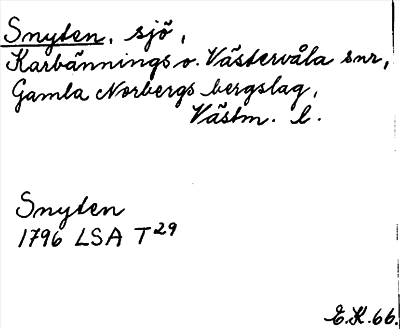 Snyten, sjö,
Karbännings o. Västervåla snr,
Gamla Norbergs bergslag,
Västm. l.
Snyten
1796 LSA T29
E.K.66.